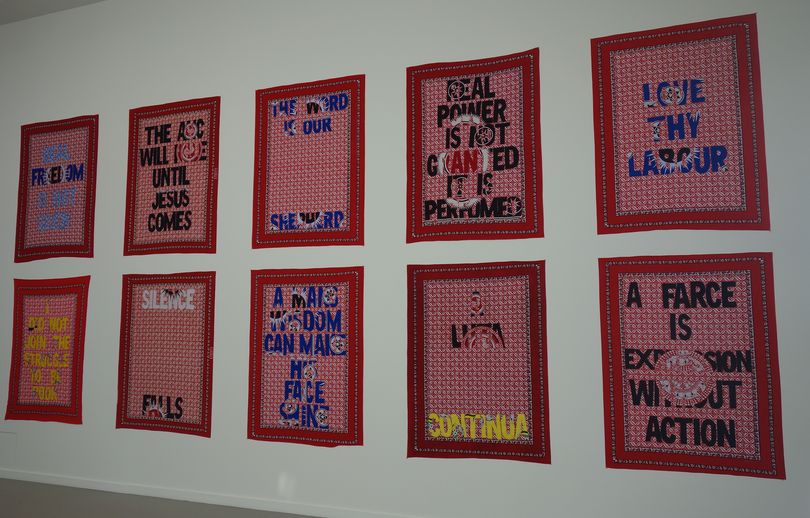 FREEDOM
IS NOT
THE ANC
WILL RULE
UNTIL
JESUS
COMES
THE WORD
IS OUR
SHEPHERD
REAL
POWER
IS NOT
GRANTED
IT IS
PERFUMED
LOVE
THY
LABOUR
I
DID NOT
JOIN THE
STRUGGLE
TO BE
POOR
SILENCE
FALLS
A MANS
WISDOM
CAN MAKE
HIS
FACE
SHINE
A
LUTA
CONTINUA
A FARCE
IS
EXPRESSION
WITHOUT
ACTION